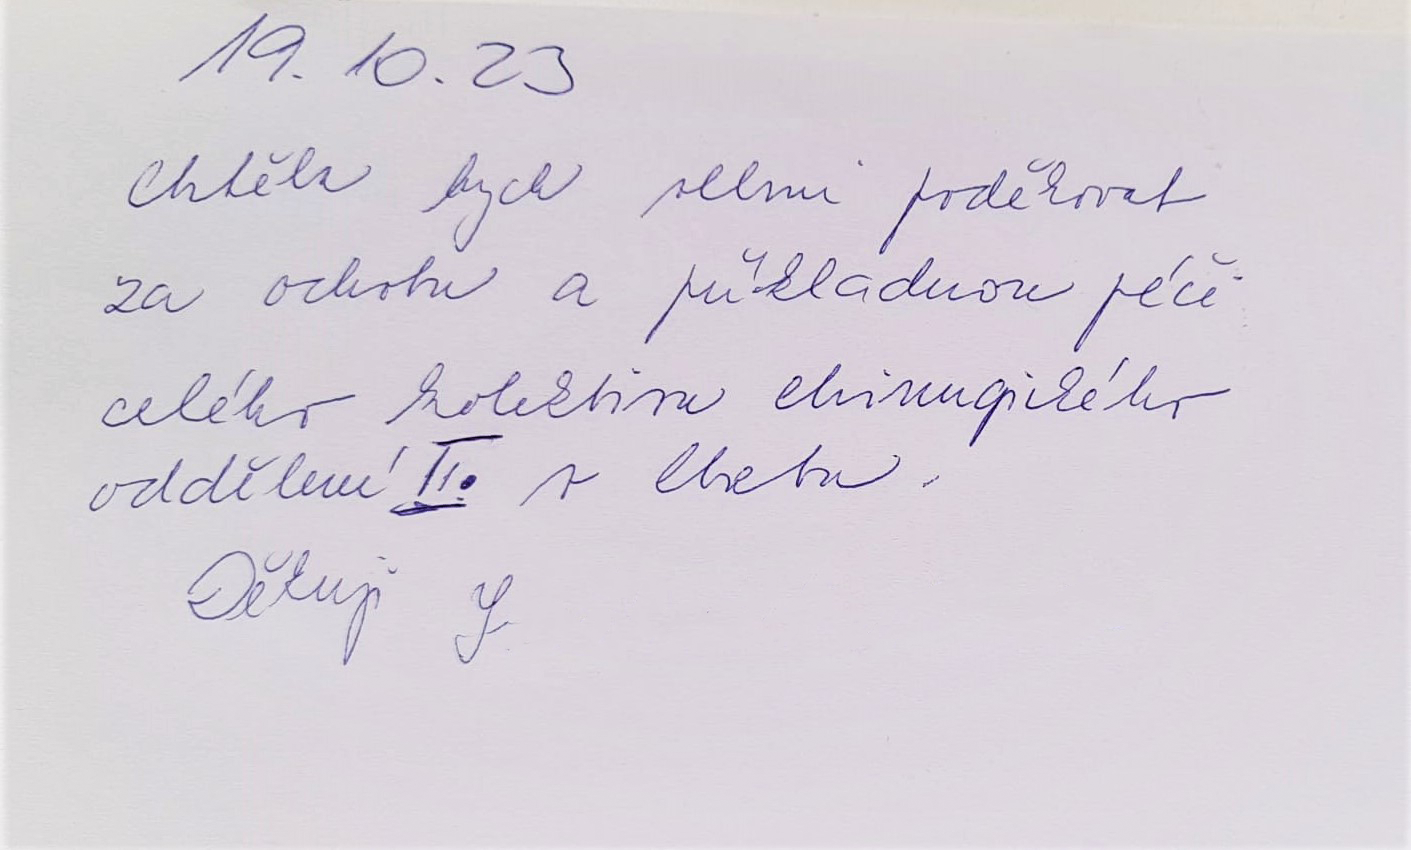 19. 10. 23
Chtěla bych velmi poděkovat
za ochotu a příkladnou péči
celého kolektivu chirurgického
oddělení II. v Chebu.
Děkuji